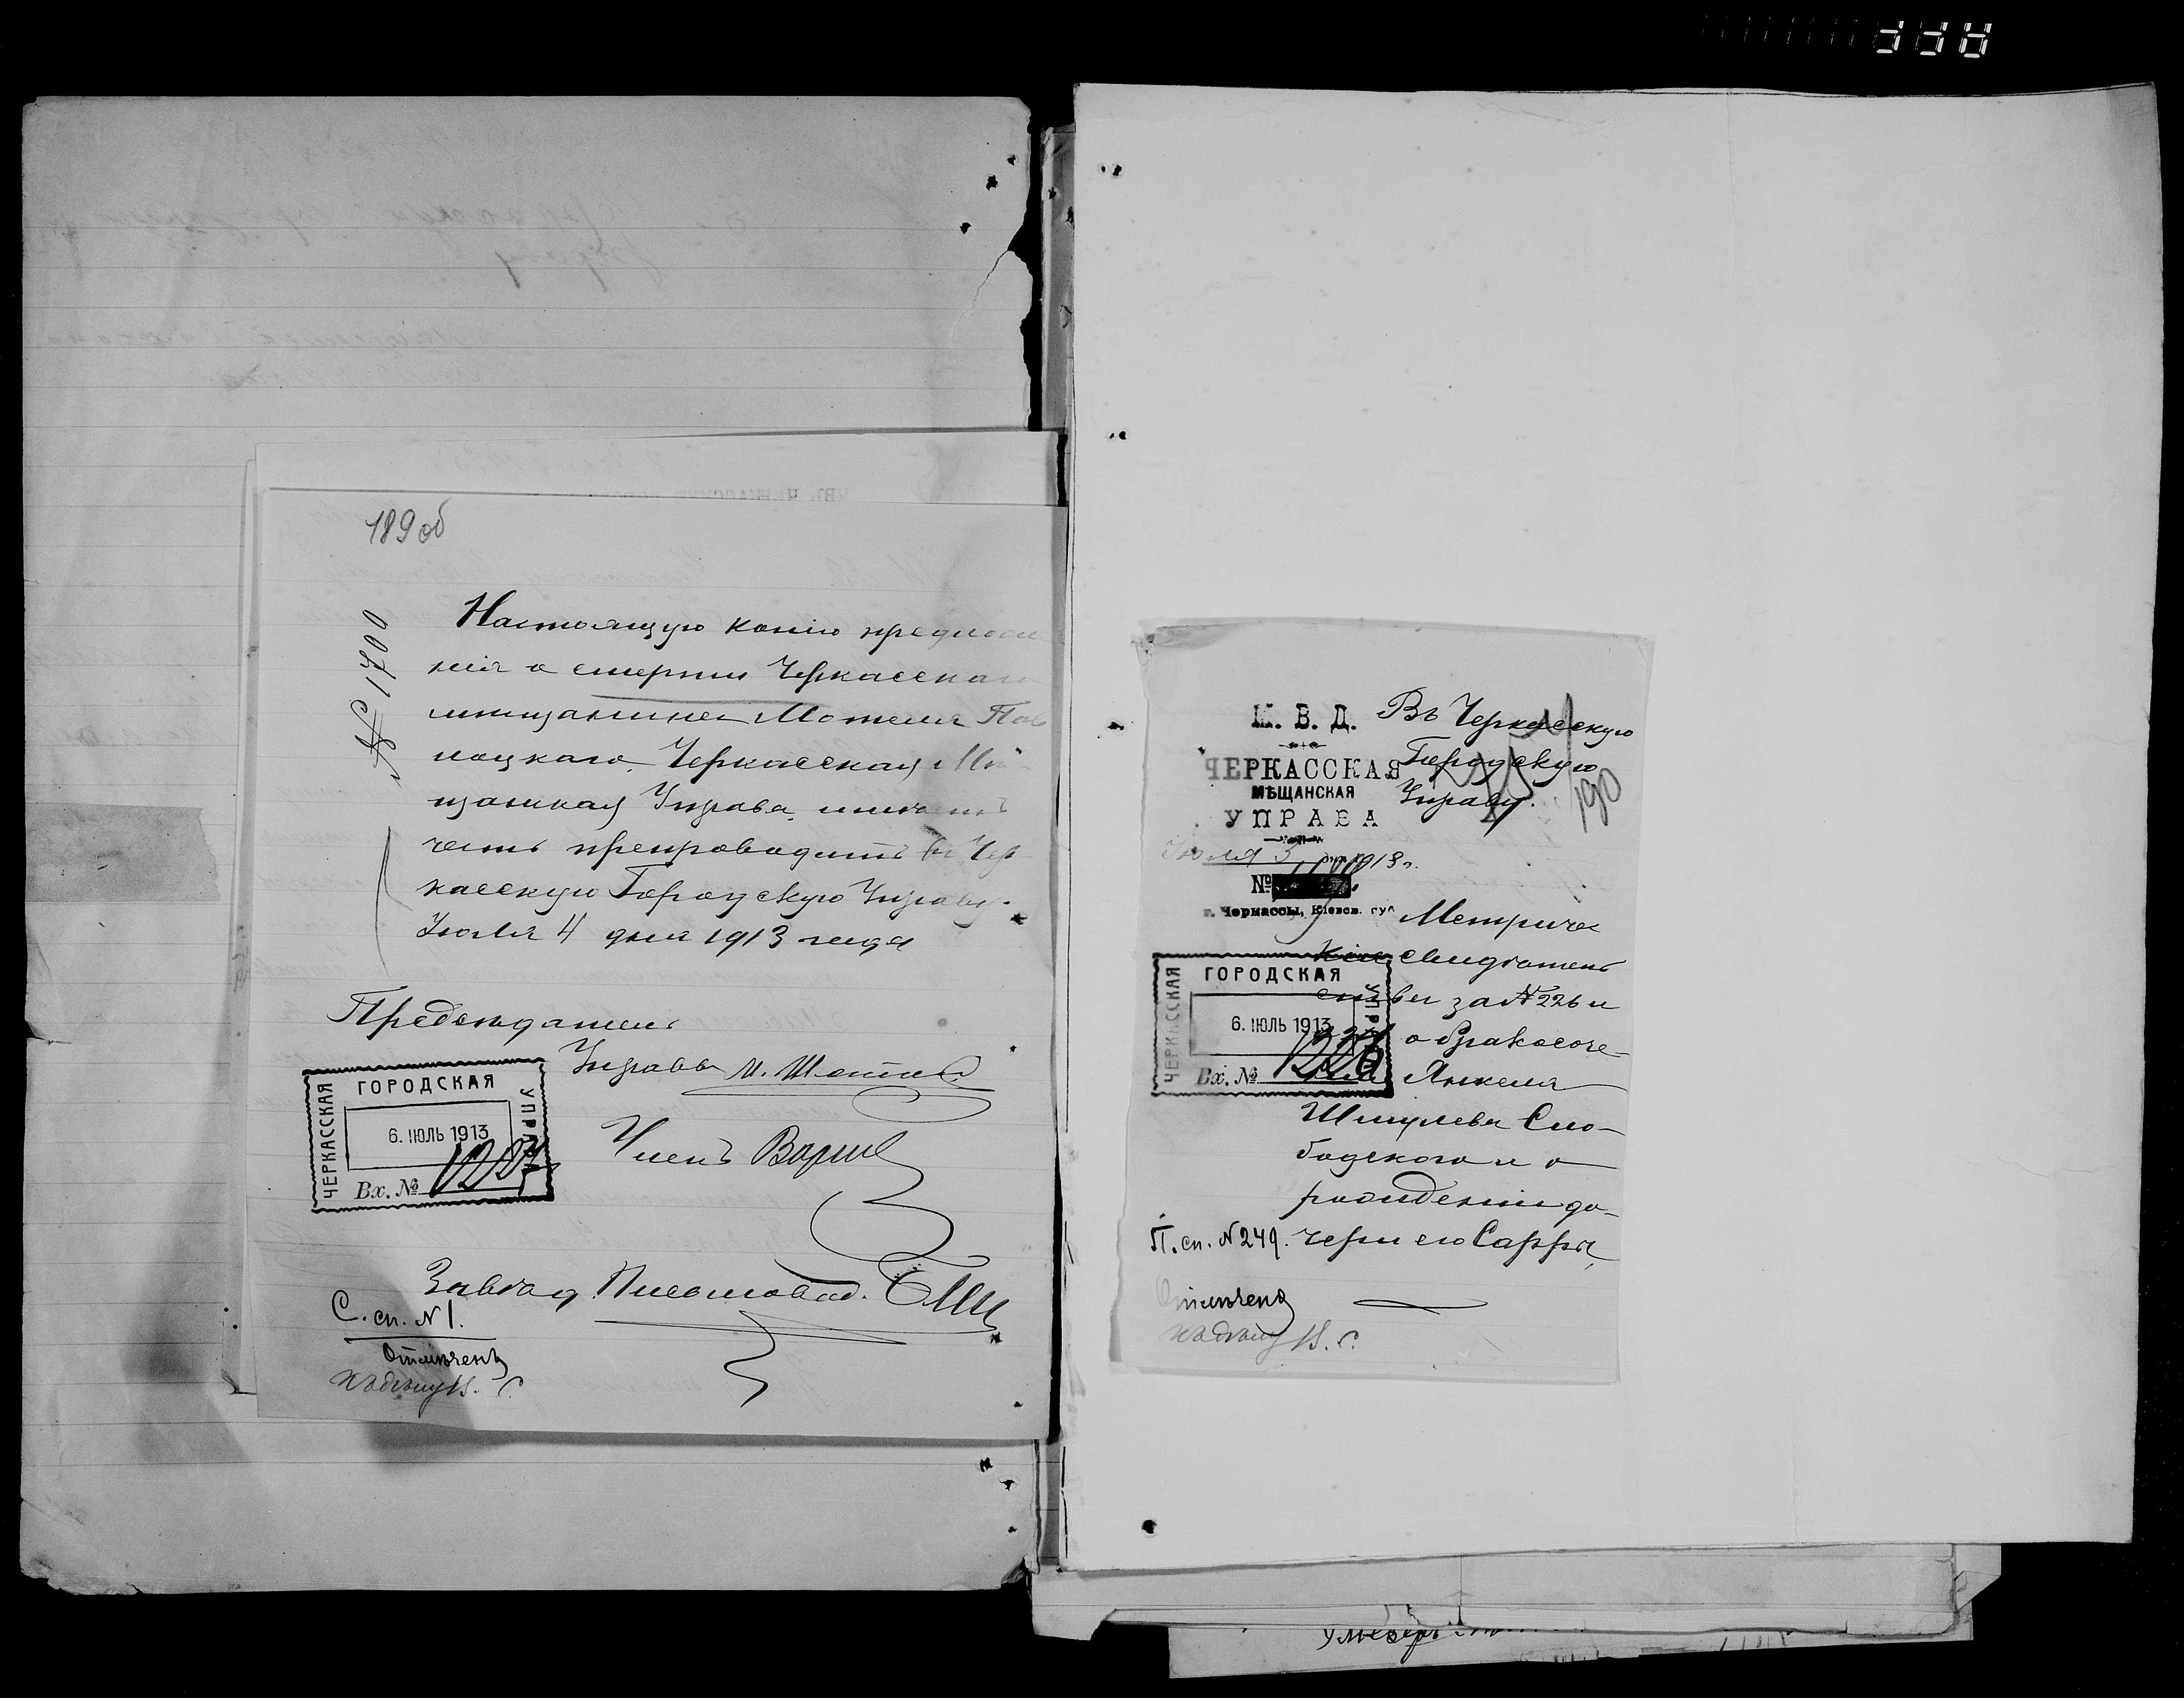 189 об
№ 1700
Настоящую копію предложе
нія о смерти Черкасскаго
мѣщанина Мотеля Пов
лоцкаго, Черкасская Мѣ
щанская Управа имѣетъ
честь препроводить въ Чер
касскую Городскую Управу.
Іюля 4 дня 1913 года
Предсѣдатель
Управы
Членъ
ЧЕРКАССКАЯ ГОРОДСКАЯ УПРАВА
6. ІЮЛЬ 1913
Вх. №
Завѣд. Письмовод.
С. сп. № 1.
Отмѣчен
М. В. Д.
ЧЕРКАССКАЯ
МѢЩАНСКАЯ
УПРАВА
Іюля 5 дня 1913 г.
№
г. Черкассы, Кіевск. губ.
Въ Черкасскую
Городскую
Управу.
190
Метричес
кіе свидѣтель
ства за № 226 и
о бракосоче-
Янкеля
Шмулева Сло-
бодского и о
рожденіи до-
чери его Сарры,
ЧЕРКАССКАЯ ГОРОДСКАЯ УПРАВА
6. ІЮЛЬ 1913
Вх. № 1226
П. сп. № 249.
Отмѣчена